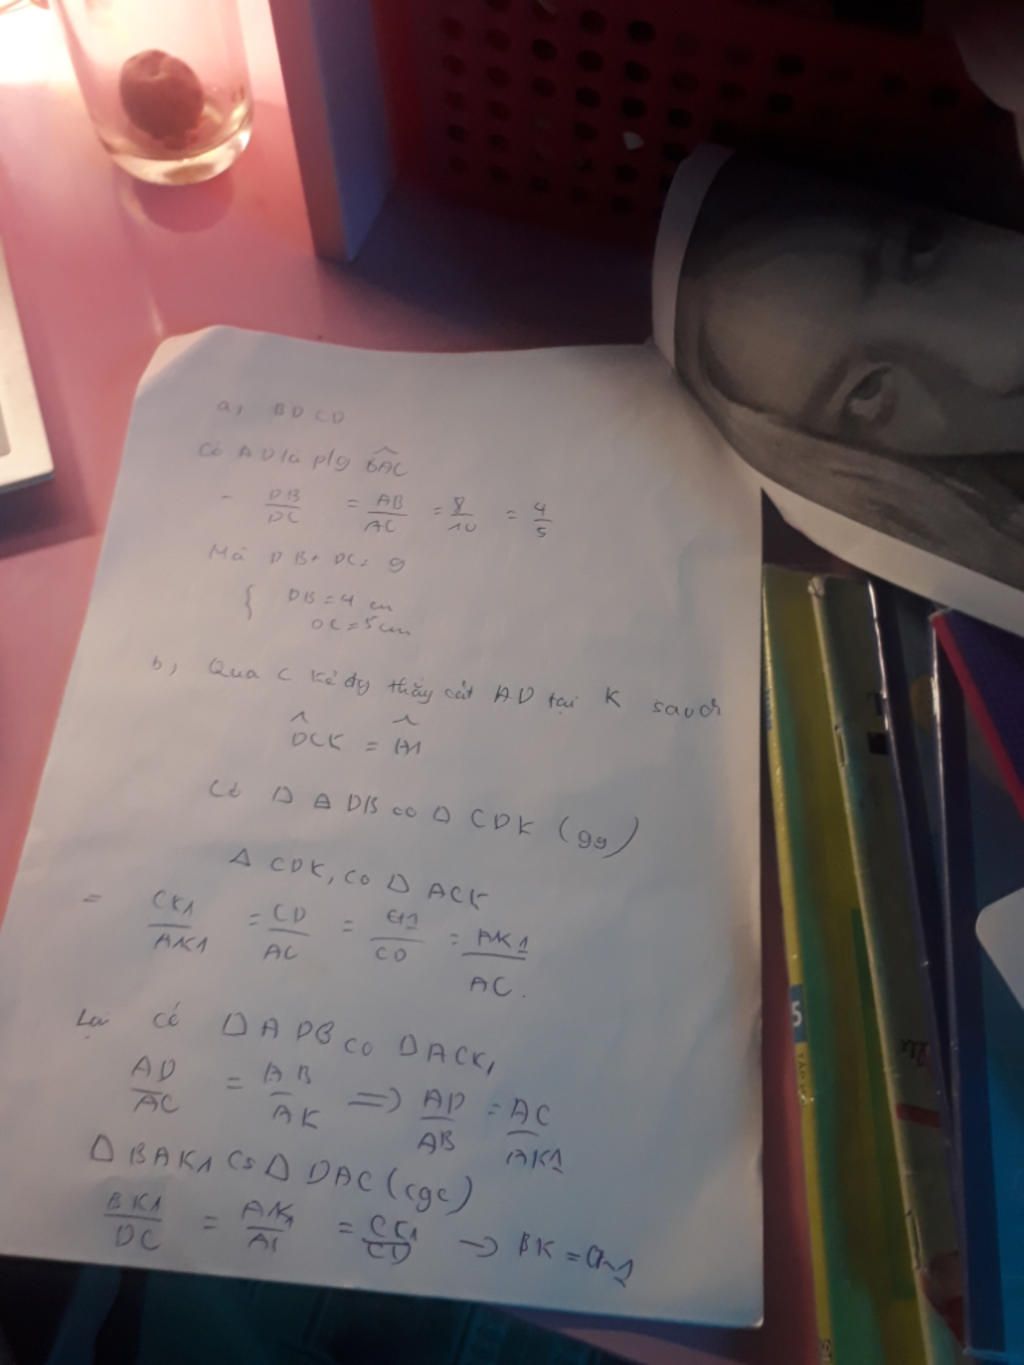 a, BD CD
Có AD là p/g BAC
- DB/DC = AB/AC = 8/10 = 4/5
Mà DB + DC = 9
{ DB = 4 cm
DC = 5 cm
b, Qua C kẻ đg thẳng cắt AD tại K sao cho
DCK = A1
Có Δ ADB ∽ Δ CDK (gg)
Δ CDK, ∽ Δ ACK
= CK1/AK1 = CD/AC = /CD = AK1/AC.
Lại có ΔADB ∽ ΔACK1
AD/AC = AB/AK => AD/AB = AC/AK1
ΔBAK1 ∽ Δ DAC (cgc)
BK1/DC = AK1/AC = CK1/CD → BK =
5